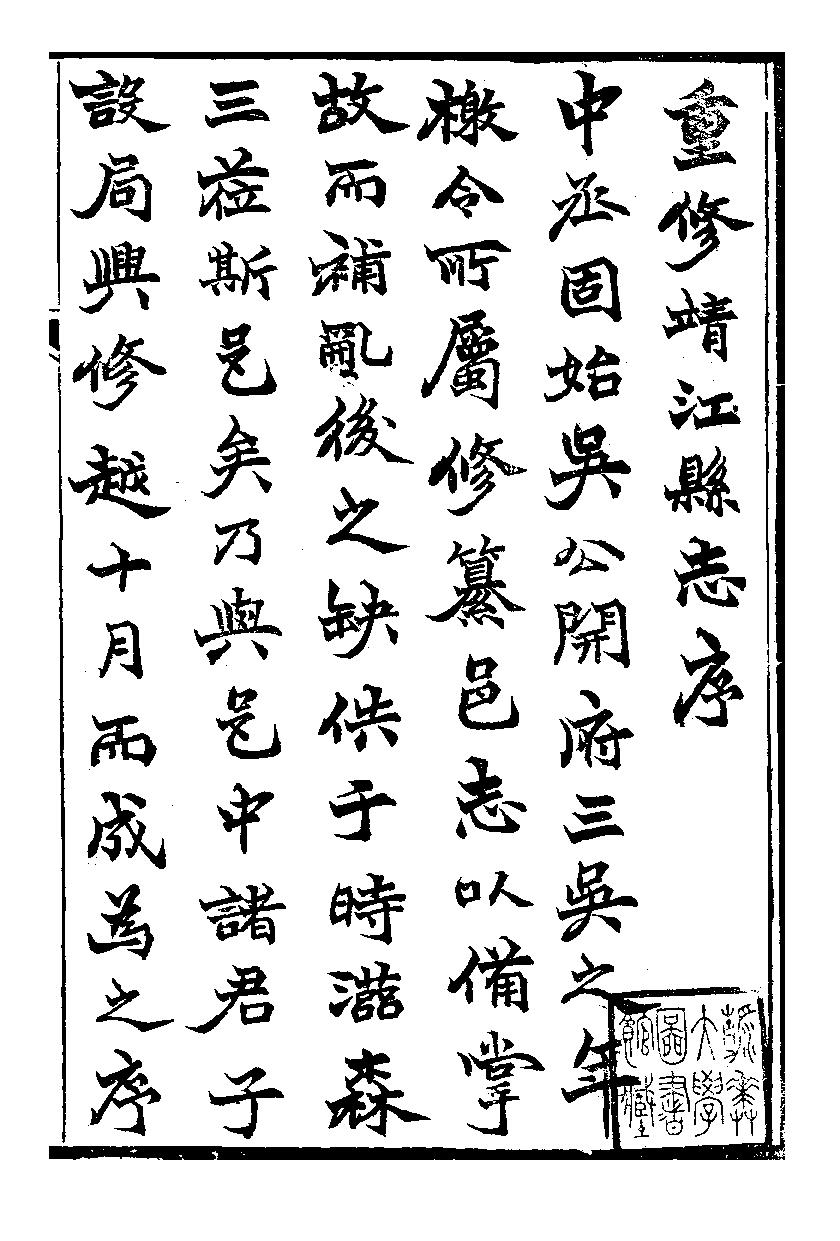 重修靖江縣志序
中丞固始吳公開府三吳之年
檄令所屬修纂邑志以備掌
故而補亂後之缺佚于時滋森
三蒞斯邑矣乃與邑中諸君子
設局興修越十月而成為之序
大學
圖書
館藏